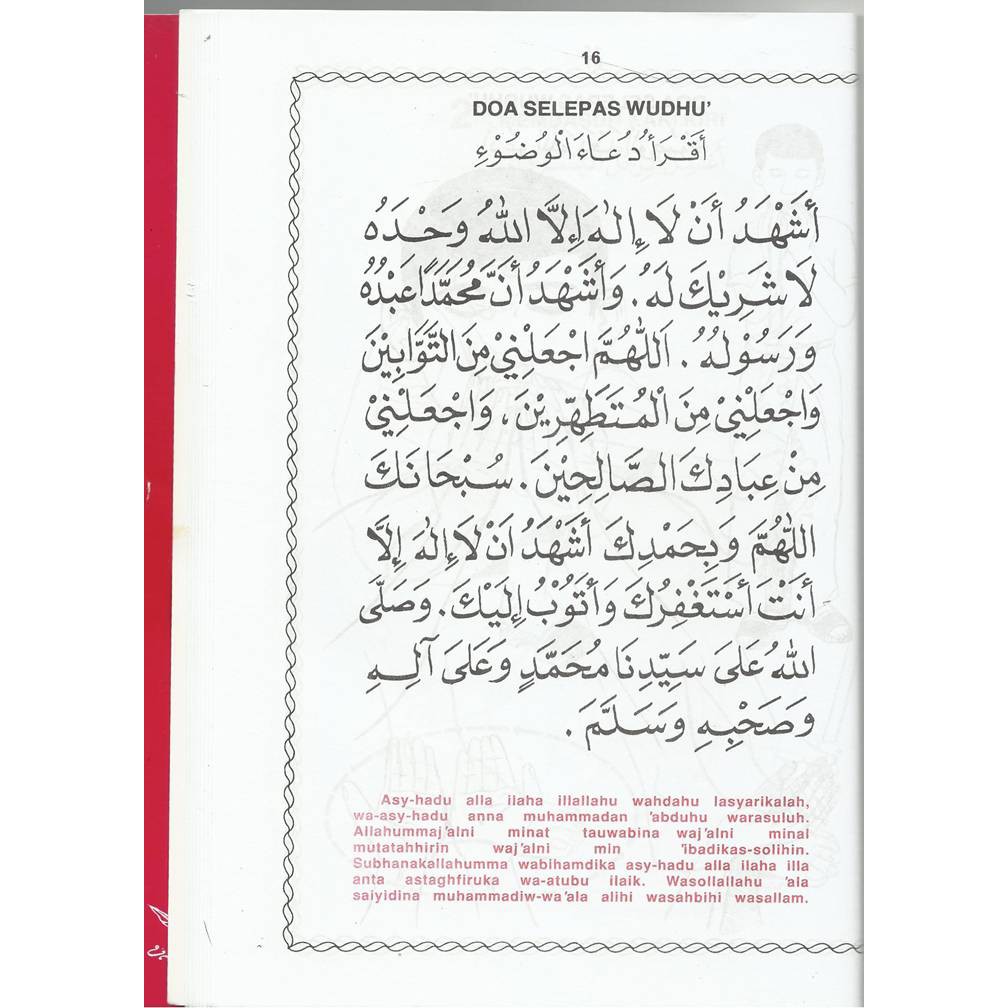 16
DOA SELEPAS WUDHU'
أَقْرَأُ دُعَاءَ الْوُضُوْءِ
أَشْهَدُ أَنْ لَا إِلٰهَ إِلَّا اللّٰهُ وَحْدَهُ
لَا شَرِيْكَ لَهُ. وَأَشْهَدُ أَنَّ مُحَمَّدًا عَبْدُهُ
وَرَسُوْلُهُ. اَللّٰهُمَّ اجْعَلْنِيْ مِنَ التَّوَّابِيْنَ
وَاجْعَلْنِيْ مِنَ الْمُتَطَهِّرِيْنَ، وَاجْعَلْنِيْ
مِنْ عِبَادِكَ الصَّالِحِيْنَ. سُبْحَانَكَ
اللّٰهُمَّ وَبِحَمْدِكَ أَشْهَدُ اَنْ لَا إِلٰهَ إِلَّا
أَنْتَ أَسْتَغْفِرُكَ وَأَتُوْبُ إِلَيْكَ. وَصَلَّى
اللّٰهُ عَلَى سَيِّدِنَا مُحَمَّدٍ وَعَلَى آلِهِ
وَصَحْبِهِ وَسَلَّمَ.
Asy-hadu alla ilaha illallahu wahdahu lasyarikalah,
wa-asy-hadu anna muhammadan 'abduhu warasuluh.
Allahummaj'alni minat tauwabina waj'alni minal
mutatahhirin waj'alni min 'ibadikas-solihin.
Subhanakallahumma wabihamdika asy-hadu alla ilaha illa
anta astaghfiruka wa-atubu ilaik. Wasollallahu 'ala
saiyidina muhammadiw-wa'ala alihi wasahbihi wasallam.